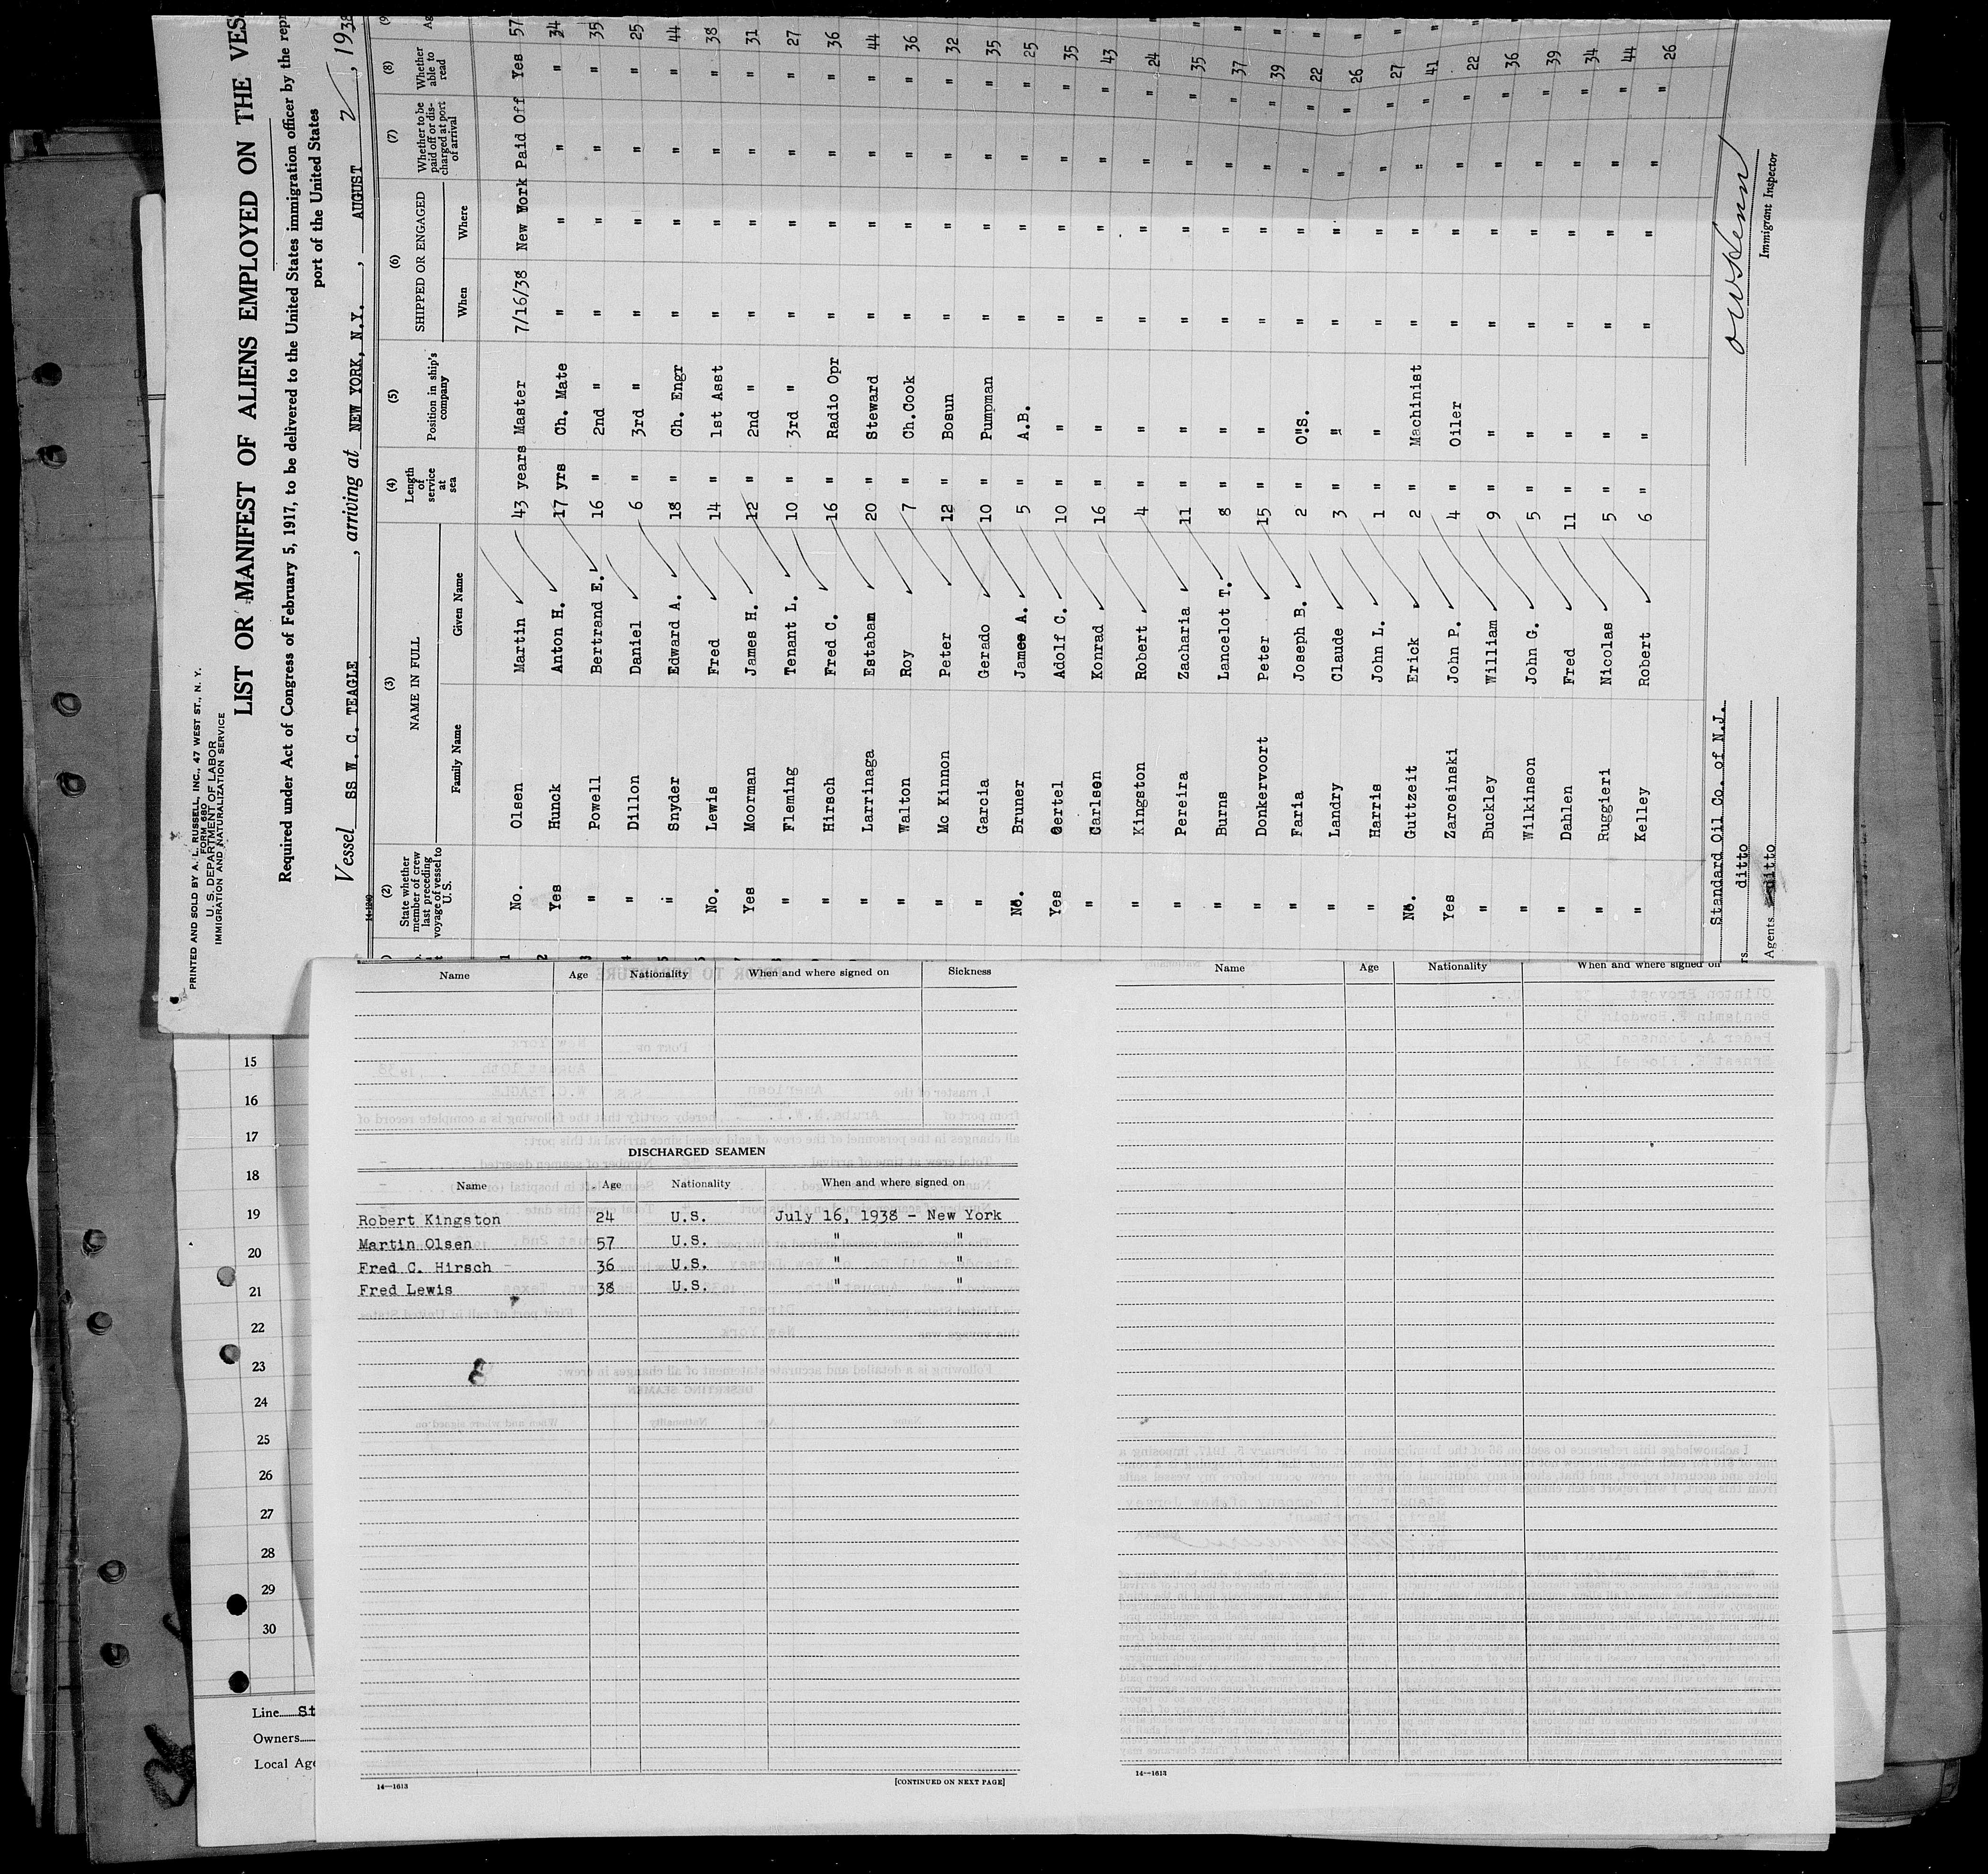 PRINTED AND SOLD BY A. L. RUSSELL, INC., 47 WEST ST., N. Y.
FORM 680
U. S. DEPARTMENT OF LABOR
IMMIGRATION AND NATURALIZATION SERVICE
LIST OR MANIFEST OF ALIENS EMPLOYED ON THE VES
Required under Act of Congress of February 5, 1917, to be delivered to the United States immigration officer by the repr
port of the United States
Vessel SS W. C. TEAGLE, arriving at NEW YORK, N.Y., AUGUST 2, 1938
14-1240
(2) State whether member of crew last preceding voyage of vessel to U. S.
(3) NAME IN FULL Family Name Given Name
(4) Length of service at sea
(5) Position in ship's company
(6) SHIPPED OR ENGAGED When Where
(7) Whether to be paid off or discharged at port of arrival
(8) Whether able to read
1 No. Olsen Martin 43 years Master 7/16/38 New York Paid Off Yes 57
2 Yes Hunck Anton H. 17 yrs Ch. Mate " " " " 34
3 " Powell Bertrand E. 16 " 2nd " " " " " 35
4 " Dillon Daniel 6 " 3rd " " " " " 25
5 " Snyder Edward A. 18 " Ch. Engr " " " " 44
No. Lewis Fred 14 " 1st Asst " " " " 38
Yes Moorman James H. 12 " 2nd " " " " " 31
" Fleming Tenant L. 10 " 3rd " " " " " 27
" Hirsch Fred C. 16 " Radio Opr " " " " 36
" Larrinaga Estaban 20 " Steward " " " " 44
" Walton Roy 7 " Ch.Cook " " " " 36
" Mc Kinnon Peter 12 " Bosun " " " " 32
" Garcia Gerado 10 " Pumpman " " " " 35
No. Bruner James A. 5 " A.B. " " " " 25
Yes Oertel Adolf C. 10 " " " " " " 35
" Carlson Konrad 16 " " " " " " 43
" Kingston Robert 4 " " " " " " 24
" Pereira Zacharia 11 " " " " " " 35
" Burns Lancelot T. 8 " " " " " " 37
" Donkervoort Peter 15 " " " " " " 39
" Faria Joseph B. 2 " O.S. " " " " 22
" Landry Claude 3 " " " " " " 26
" Harris John L. 1 " " " " " " 27
No. Guttzeit Erick 2 " Machinist " " " " 41
Yes Zarosinski John P. 4 " Oiler " " " " 22
" Buckley William 9 " " " " " " 36
" Wilkinson John G. 5 " " " " " " 39
" Dahlen Fred 11 " " " " " " 34
" Ruggieri Nicolas 5 " " " " " " 44
" Kelley Robert 6 " " " " " " 26
Standard Oil Co. of N.J.
rs. ditto
Agents ditto
Immigrant Inspector
Name Age Nationality When and where signed on Sickness
DISCHARGED SEAMEN
Name Age Nationality When and where signed on
Robert Kingston 24 U.S. July 16, 1938 - New York
Martin Olsen 57 U.S. " "
Fred C. Hirsch 36 U.S. " "
Fred Lewis 38 U.S. " "
14—1613
[CONTINUED ON NEXT PAGE]
Name Age Nationality When and where signed on
14—1613
15
16
17
18
19
20
21
22
23
24
25
26
27
28
29
30
Line St
Owners
Local Age